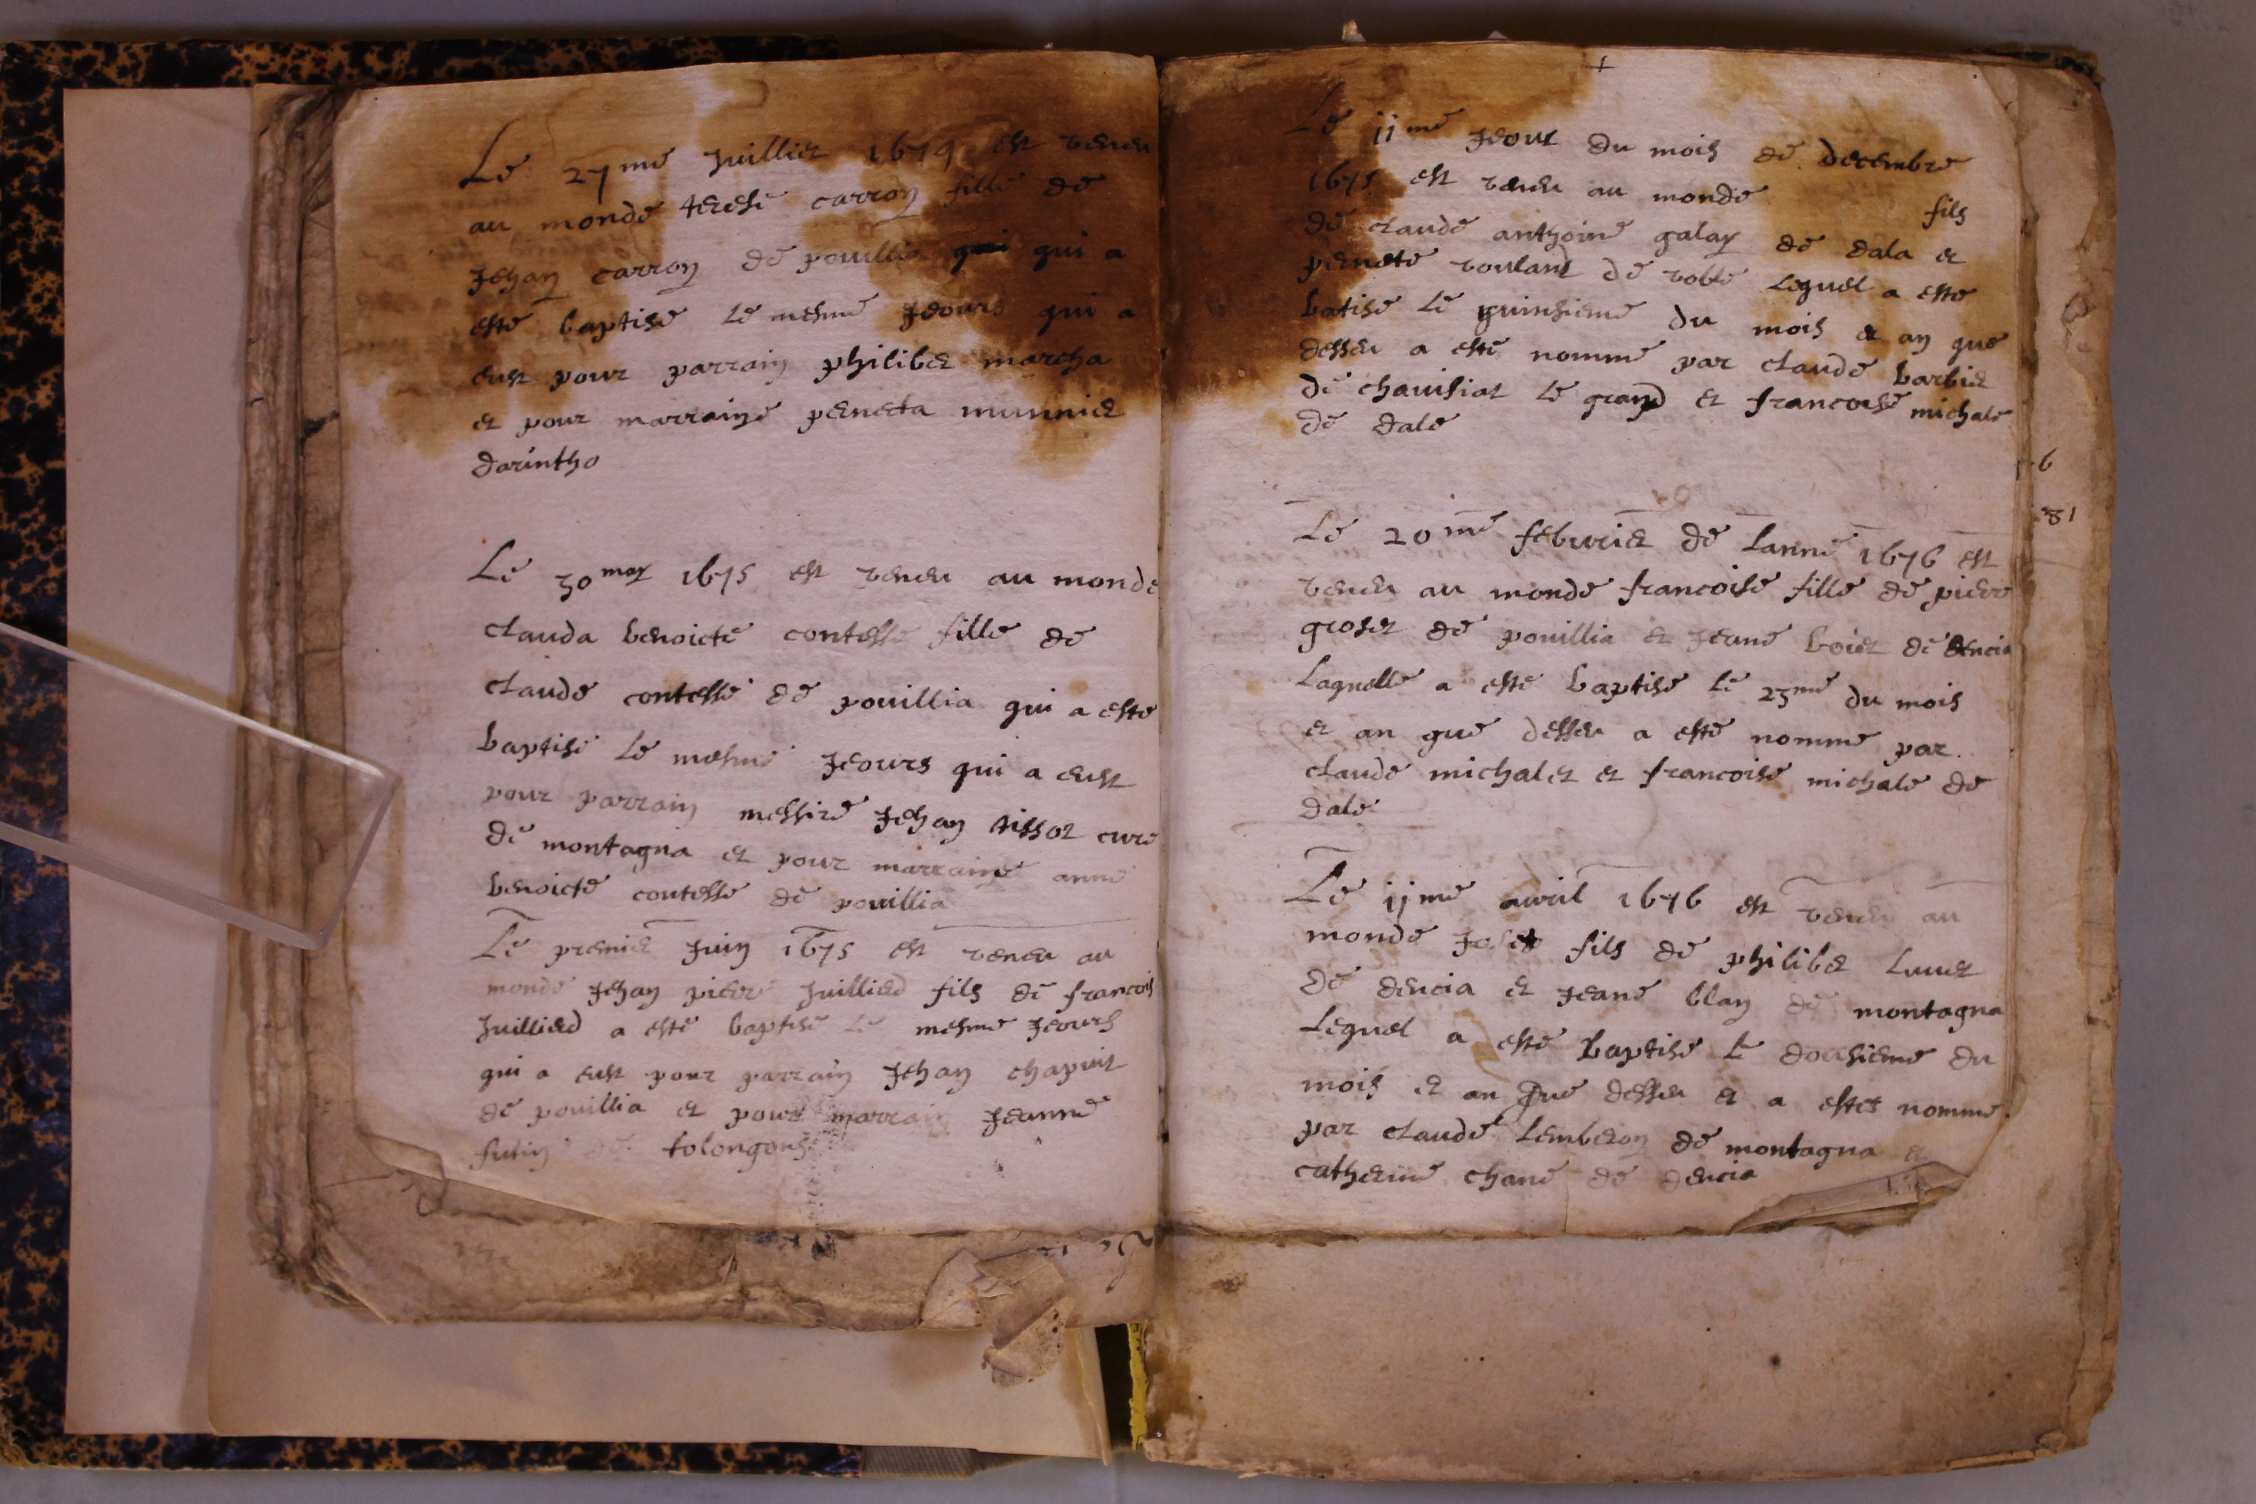 Le 27me Juillier 1674 est veneu
au monde terese carron fille de
Jehan carron de pouillia qui qui a
esté baptisé Le mesme Jeours qui a
eust pour parrain philiber marcha
et pour marraine peneta munnier
darintho
Le 30 may 1675 est veneu au monde
clauda benoicte contesse fille de
claude contesse de pouillia qui a este
baptisé Le mesme Jeours qui a eust
pour parrain messire Jehan tissot cure
de montagna et pour marraine anne
benoicte contesse de pouillia
Le premier Juin 1675 est veneu au
monde Jehan pierre Juillierd fils de francois
Juillierd a esté baptisé Le mesme Jeours
qui a eust pour parrain Jehan chapuit
de pouillia et pour marrain Jeanne
futin de tolongons
Le 11me Jeour du mois de decembre
1675 est veneu au monde fils
de claude anthoine galay de dala et
pernete voulant de voble Lequel a este
batisé Le quinsieme du mois et an que
desseu a esté nomme par claude barbier
de chavisiat Le grand et francoise michale
de dale
Le 20me feburier de Lanne 1676 est
veneu au monde francoise fille de pierre
groset de pouillia et Jeane boier de dencia
Laquelle a esté baptisé Le 23me du mois
et an que desseu a esté nomme par
claude michalet et francoise michale de
dale
Le 11me avril 1676 est veneu au
monde Joset fils de philiber
de dencia et Jeane blan de montagna
Lequel a esté baptisé Le dousieme du
mois et an que desseu et a estet nomme
par claude Lemberon de montagna et
catherine chane de dencia
6
81